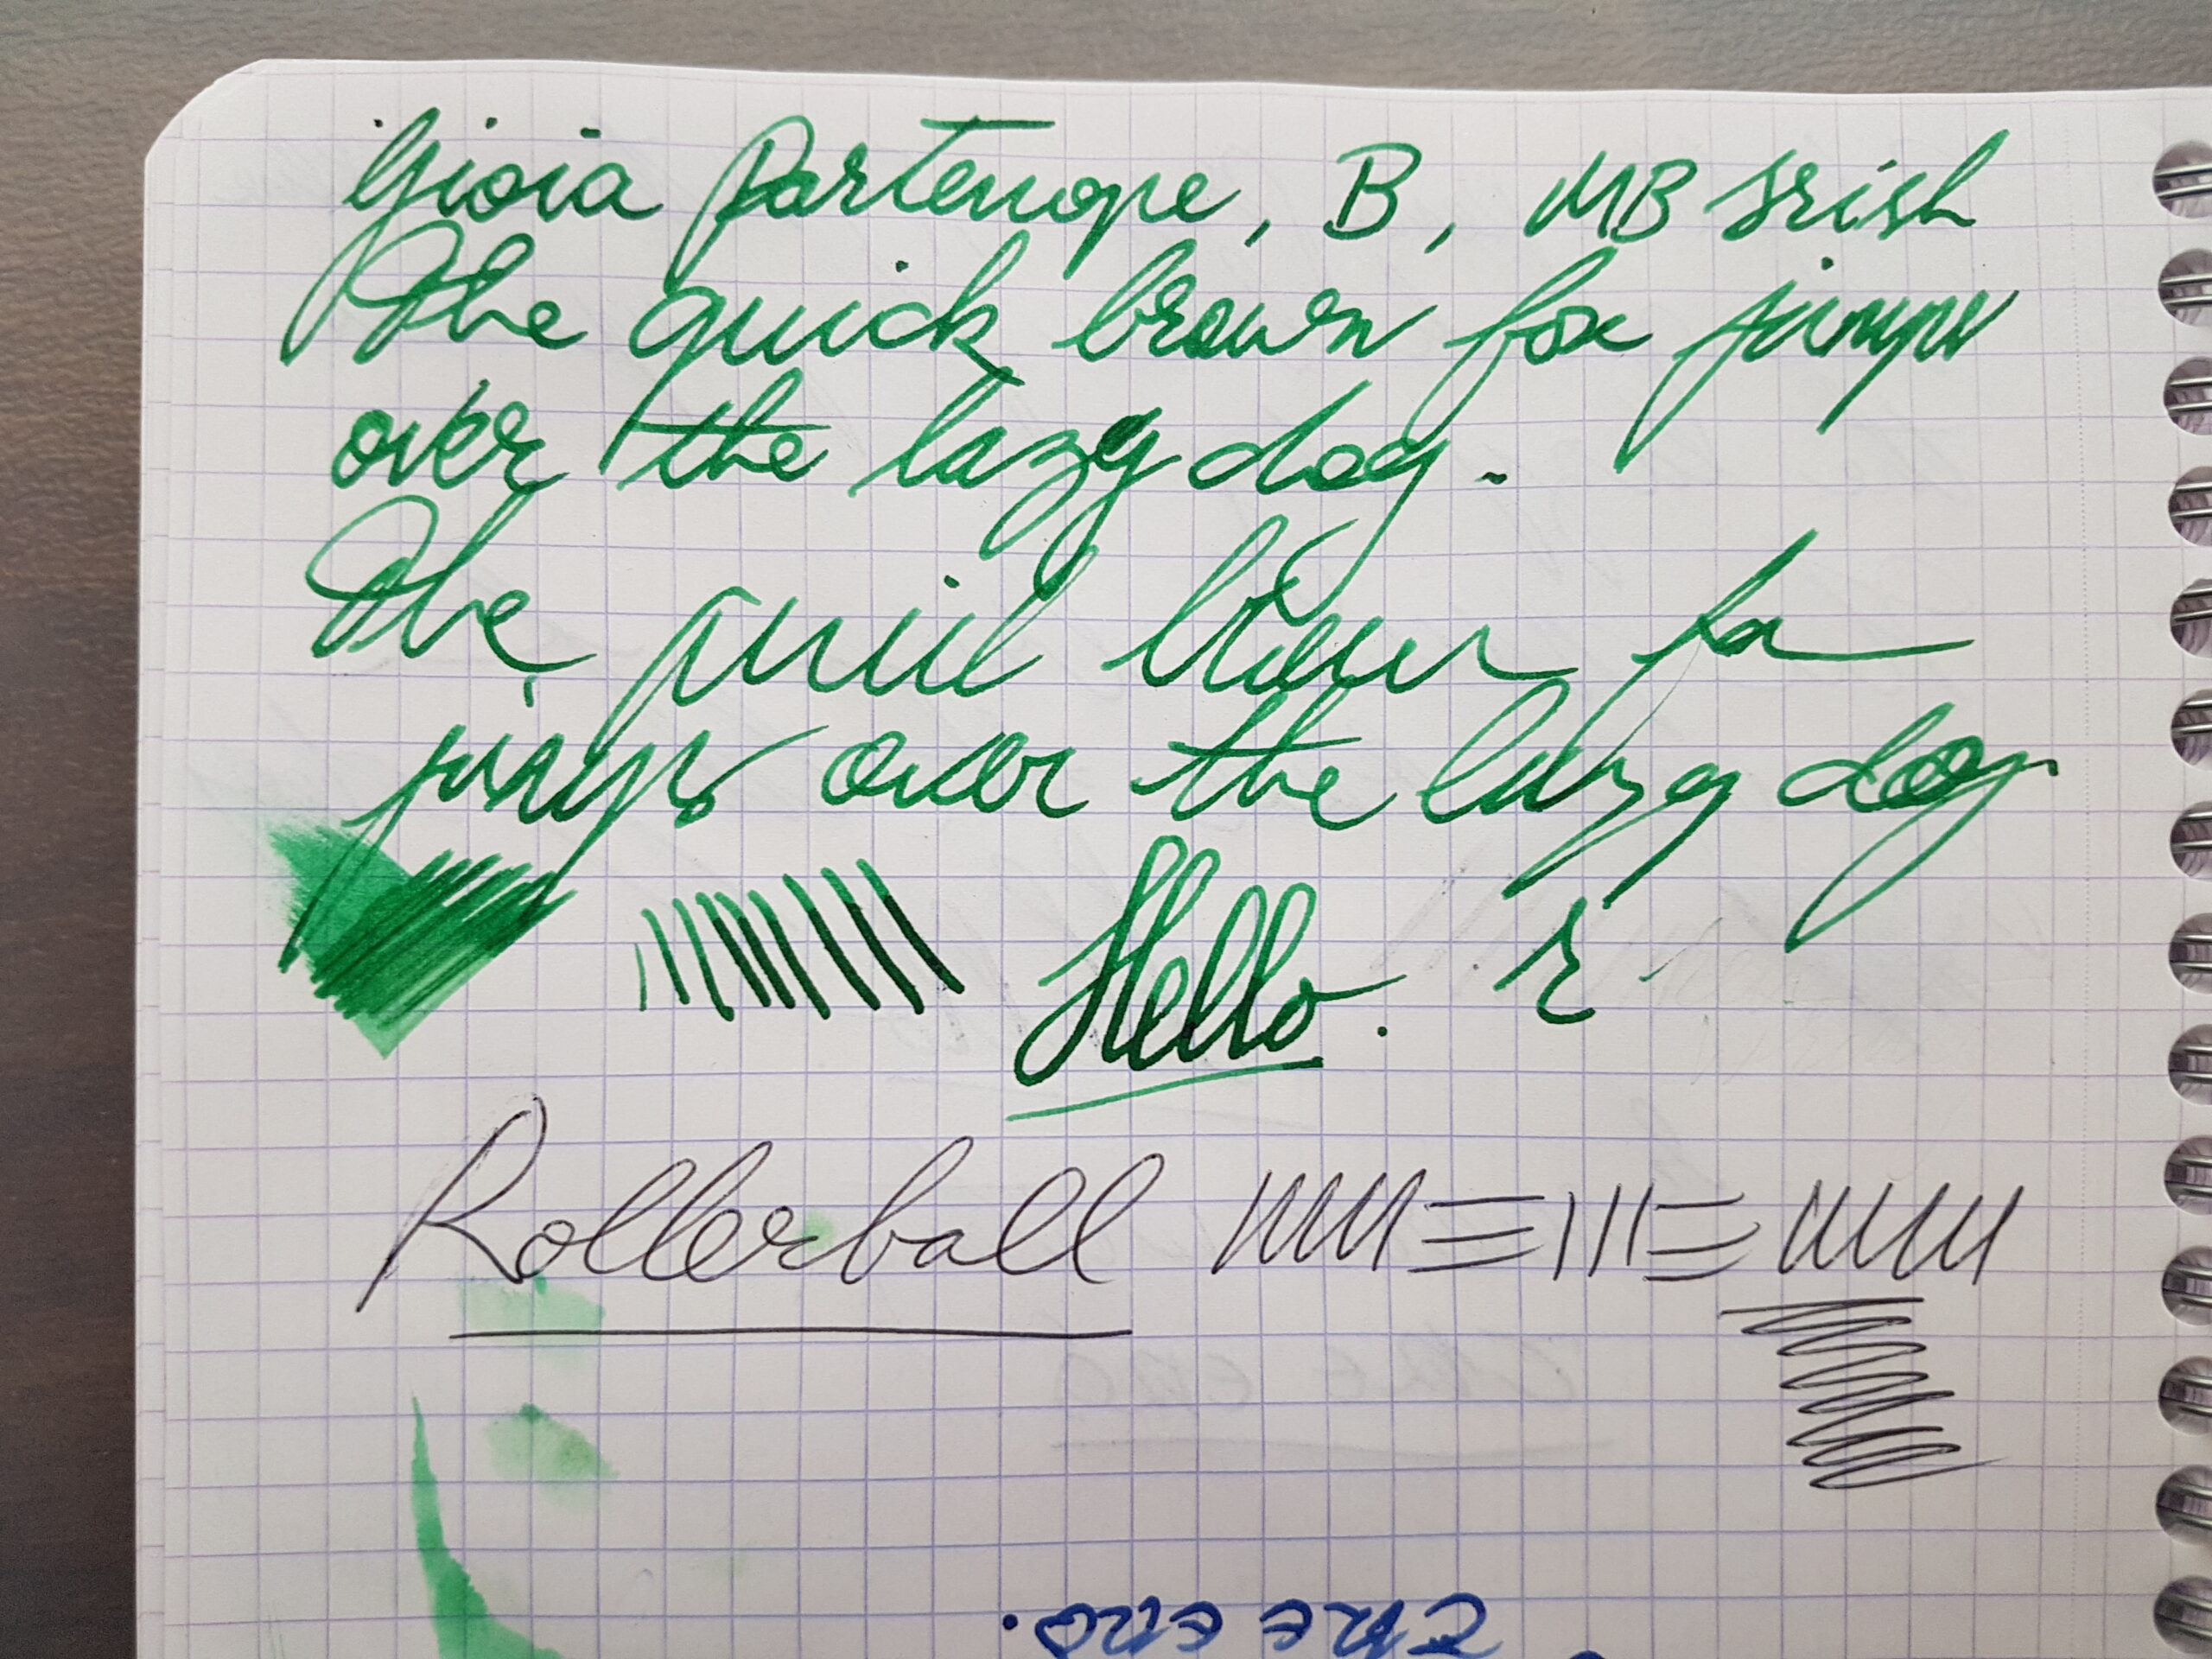 Gioia Partenope, B, MB Irish
The quick brown fox jumps
over the lazy dog.
The quick brown fox
jumps over the lazy dog
Hello. r
Rollerball